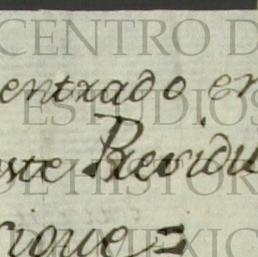 CENTRO D
entrado en
ESTUDIOS
este Residu
DE HISTOR
rique =
MEXIC